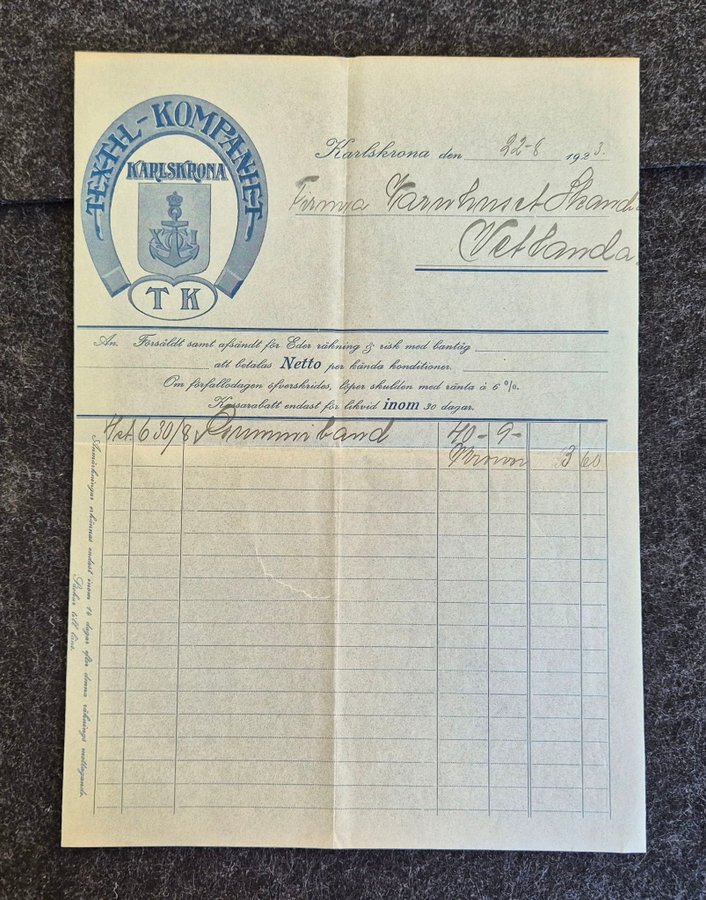 TEXTIL-KOMPANIET
KARLSKRONA
T K
Karlskrona den 22-8 1923.
Firma Varuhuset Skand.
Vetlanda.
An. Försåldt samt afsändt för Eder räkning & risk med bantåg
att betalas Netto per kända konditioner.
Om förfallodagen öfverskrides, löper skulden med ränta à 6 %.
Kassarabatt endast för likvid inom 30 dagar.
630/8 Gummiband 40 - 9 -
3 60
Anmärkningar erkännas endast inom 14 dagar efter denna räknings mottagande.
Säckar till låns.